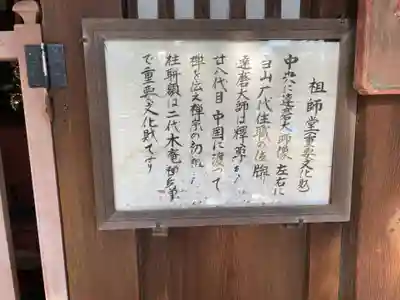 祖師堂(重要文化財)
中央に達磨大師像 左右に
当山歴代住職の位牌
達磨大師は釋尊から
廿八代目 中国に渡って
禅を伝え禅宗の初祖
柱聯額は二代木菴禅師筆
で重要文化財です